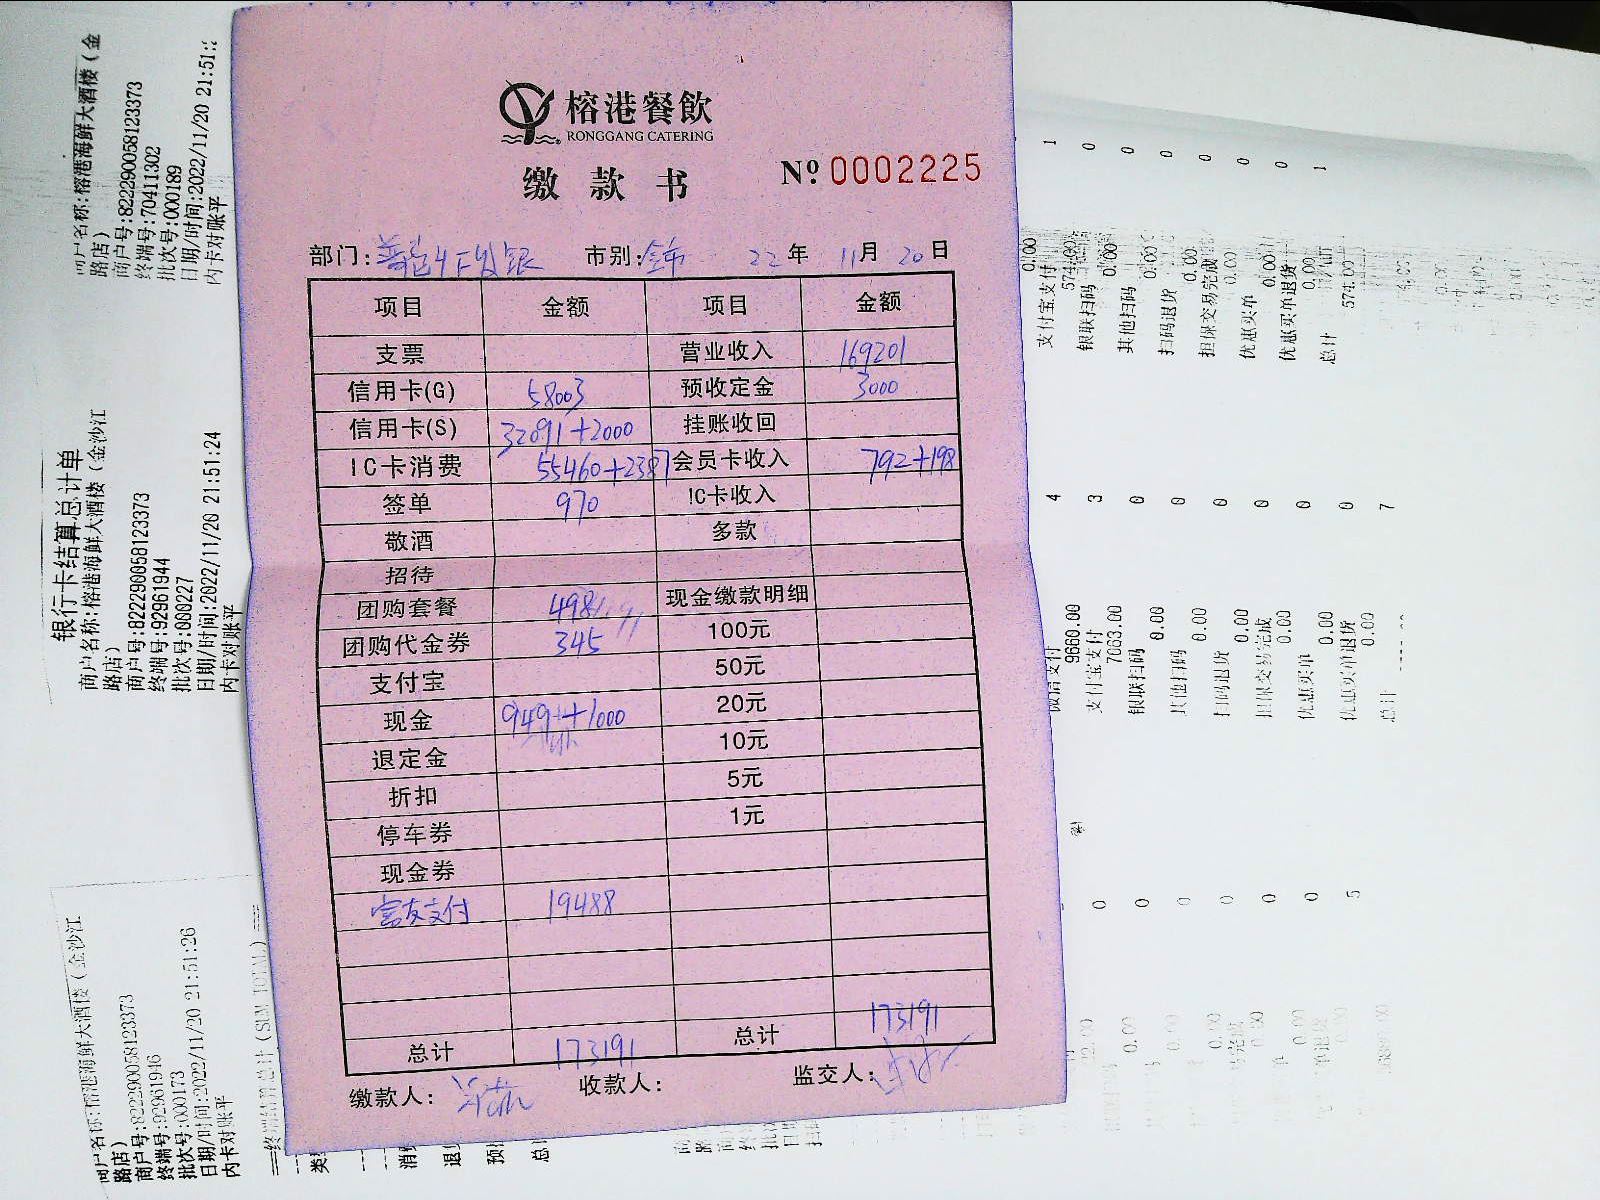 榕港餐飲
RONGGANG CATERING
缴款书
№ 0002225
部门: 市别:全市 22年 11月 20日
项目 金额 项目 金额
支票 营业收入 169201
信用卡(G) 58003 预收定金 3000
信用卡(S) 32091+2000 挂账收回
IC卡消费 55460+2387 会员卡收入 792+198
签单 970 IC卡收入
敬酒 多款
招待
团购套餐 498 现金缴款明细
团购代金券 345 100元
支付宝 50元
现金 949+1000 20元
退定金 10元
折扣 5元
停车券 1元
现金券
富友支付 19488
总计 173191 总计 173191
缴款人: 收款人: 监交人:
商户名称:榕港海鲜大酒楼(金
路店)
商户号:822290058123373
终端号:70411302
批次号:000189
日期/时间:2022/11/20 21:51:2
内卡对账平
银行卡结算总计单
商户名称:榕港海鲜大酒楼(金沙江
路店)
商户号:822290058123373
终端号:92961944
批次号:000227
日期/时间:2022/11/20 21:51:24
内卡对账平
商户名称:榕港海鲜大酒楼(金沙江
路店)
商户号:822290058123373
终端号:92961946
批次号:000173
日期/时间:2022/11/20 21:51:26
内卡对账平
0.00
支付宝支付 1
574.00
银联扫码 0
0.00
其他扫码 0
0.00
扫码退货 0
0.00
担保交易完成 0
0.00
优惠买单 0
0.00
优惠买单退货 0
0.00
总计 1
574.00
微信支付 4
9660.00
支付宝支付 3
7063.00
银联扫码 0
0.00
其他扫码 0
0.00
扫码退货 0
0.00
担保交易完成 0
0.00
优惠买单 0
0.00
优惠买单退货 0
0.00
总计 7